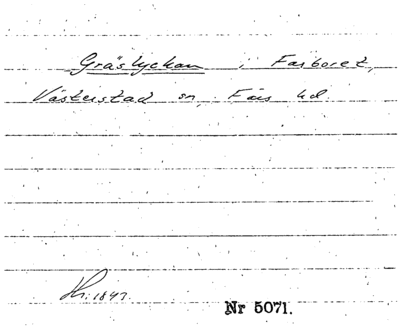 Gräslyckan, Farboret,
Västerstad sn, Färs hd.
Hr: 1847.
Nr 5071.